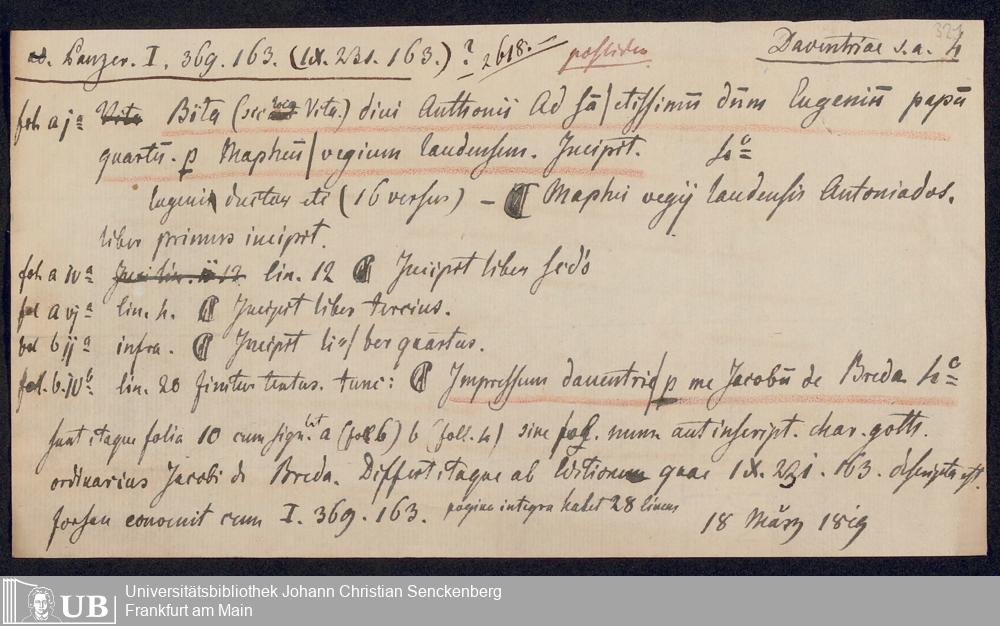 cf. Panzer. I. 369. 163. (IX. 231. 163.) ? 2618. possideo Daventriae s.a. 4
fol. a j a Vita Bita (sic loco Vita.) divi Anthonii Ad sā/ctissimū dūm Eugeniū papū
quartū. ꝑ Mapheū/vegium laudensem. Incipit. Lo c
Eugenii ductus etc (16 versus) – ¶ Maphei vegij laudensis Antoniados.
liber primus incipit.
fol. a iv a lin. 12 ¶ Incipit liber secdō
fol a vj a lin. 4. ¶ Incipit liber tercius.
fol b ij a infra. ¶ Incipit li⸗/ber quartus.
fol. b. IV b lin. 20 finitur textus. tunc: ¶ Impressum dauentrie/ꝑ me Jacobū de Breda. Lo c
sunt itaque folia 10 cum sign. a (fol 6) b (foll. 4) sine fog. num aut inscript. char. goth.
ordinarius Jacobi de Breda. Differt itaque ab Editione quae IX. 231. 163. descripta est.
forsan convenit cum I. 369. 163. pagina integra habet 28 lineas 18 März 1819
UB
Universitätsbibliothek Johann Christian Senckenberg
Frankfurt am Main